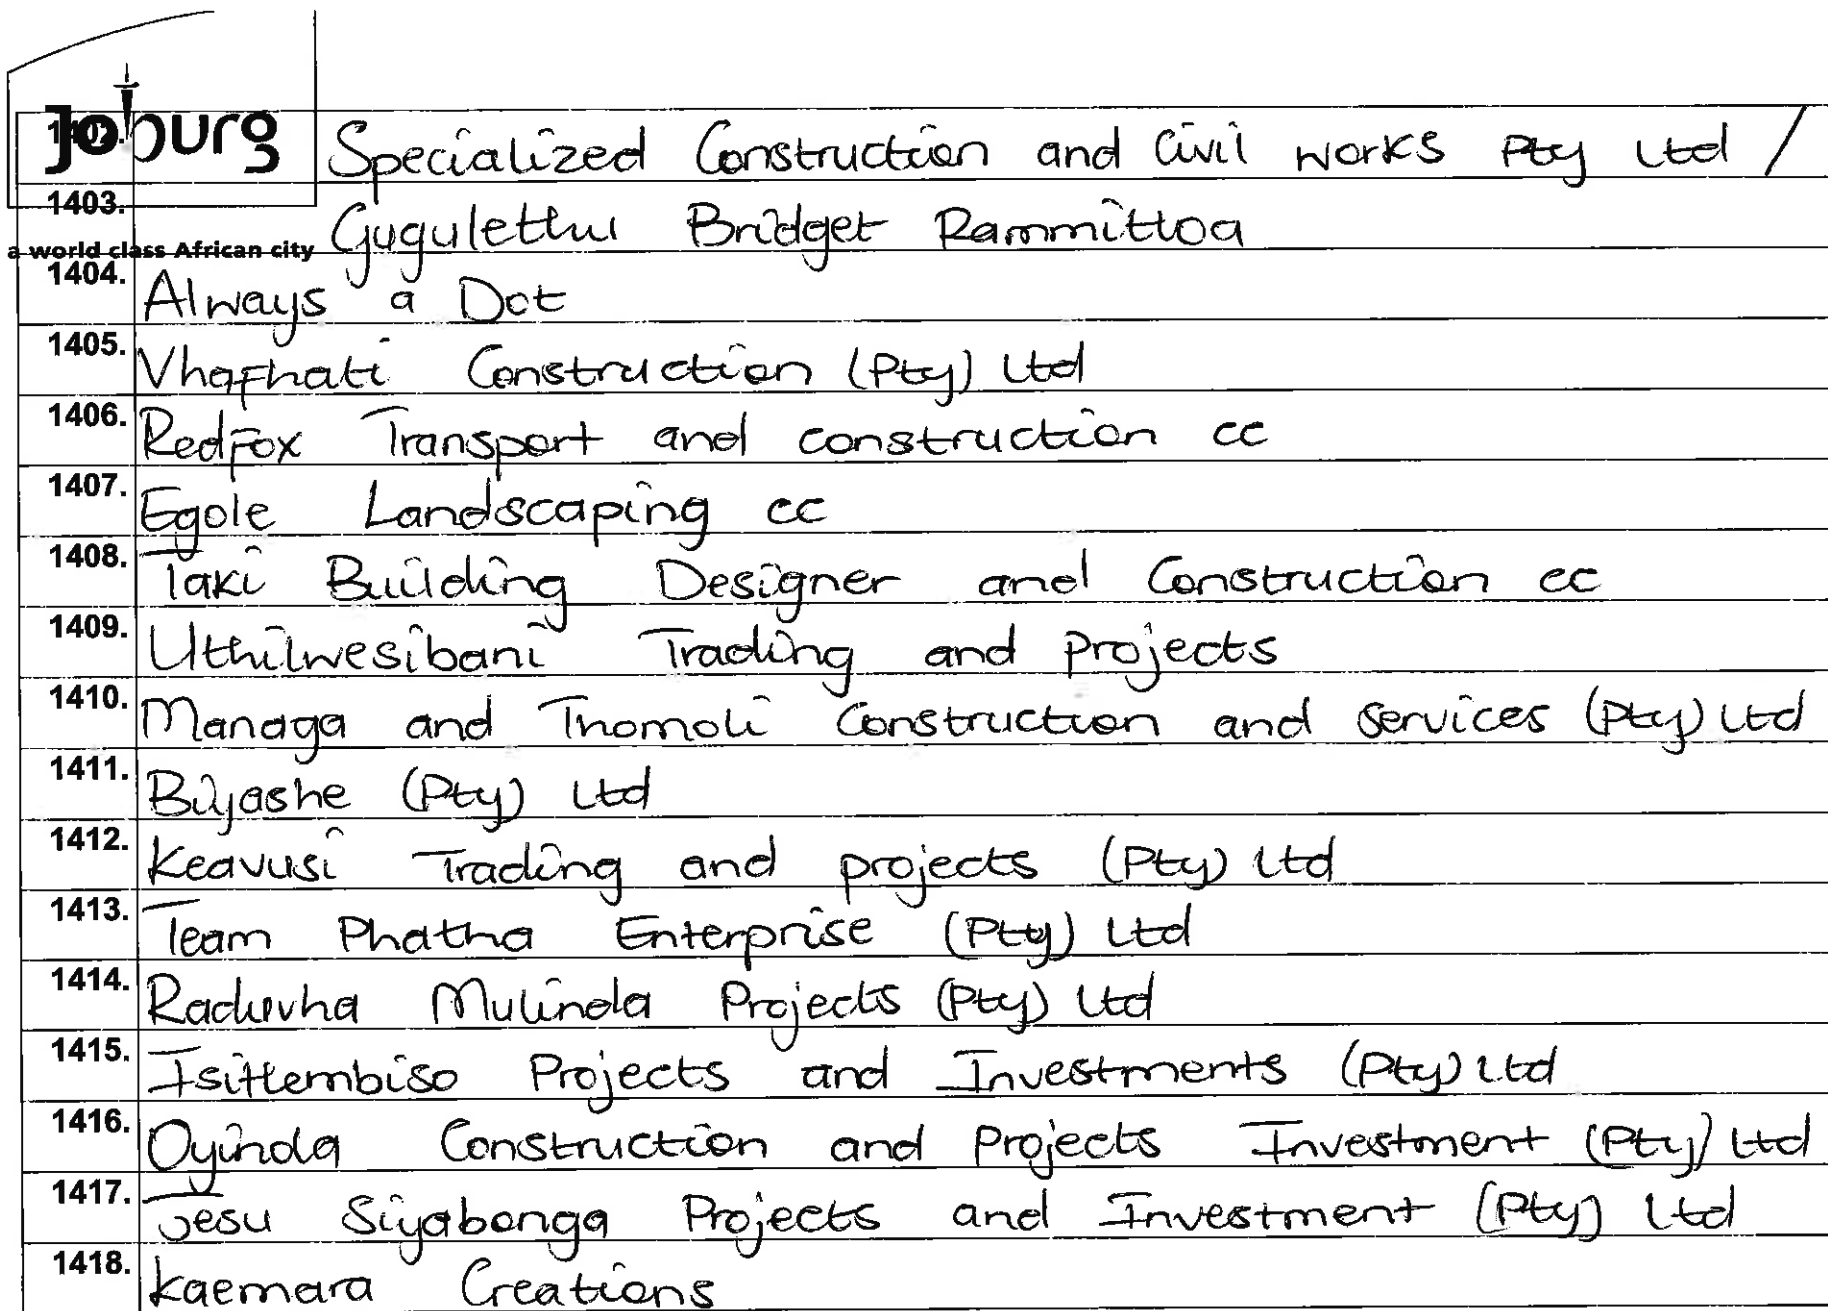 Joburg
1402. Specialized Construction and Civil works Pty Ltd /
1403. Gugulethu Bridget Rammithoa
a world class African city
1404. Always a Dot
1405. Vhafhati Construction (Pty) Ltd
1406. Redfox Transport and construction cc
1407. Egole Landscaping cc
1408. Taki Building Designer and Construction cc
1409. Uthilwesibani Trading and projects
1410. Managa and Thomoli Construction and services (Pty) Ltd
1411. Biyashe (Pty) Ltd
1412. Keavusi Trading and projects (Pty) Ltd
1413. Team Phatha Enterprise (Pty) Ltd
1414. Raduvha Mulinda Projects (Pty) Ltd
1415. Isithembiso Projects and Investments (Pty) Ltd
1416. Oyinda Construction and Projects Investment (Pty) Ltd
1417. Jesu Siyabonga Projects and Investment (Pty) Ltd
1418. Kaemara Creations